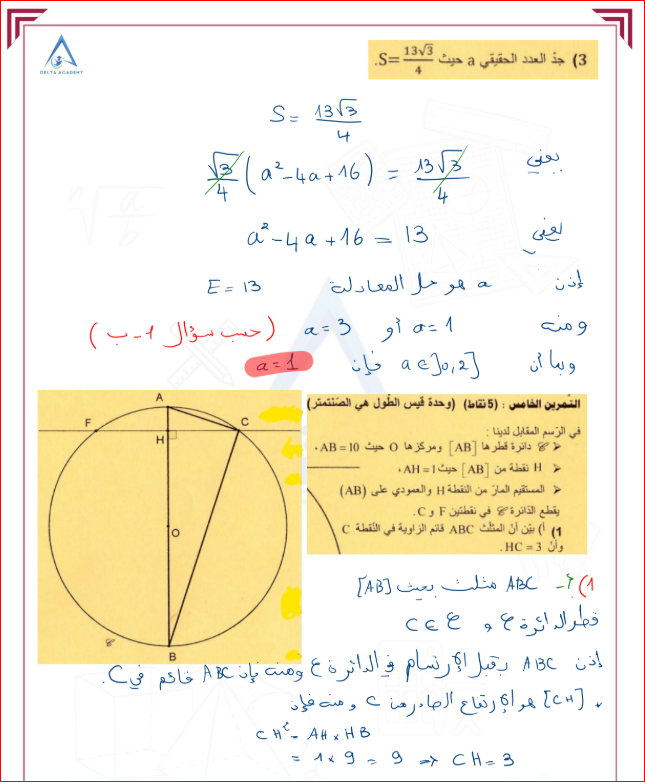 DELTA ACADEMY
3) جد العدد الحقيقي a حيث S=\frac{13\sqrt{3}}{4}.
S = \frac{13\sqrt{3}}{4}
يعني \frac{\sqrt{3}}{4} (a² - 4a + 16) = \frac{13\sqrt{3}}{4}
يعني a² - 4a + 16 = 13
إذن a هو حل المعادلة E = 13
ومنه a = 1 أو a = 3 (حسب سؤال 1 - ب)
وبما أن a ∈ ]0,2[ فإن a = 1
A
F
C
H
O
B
𝒞
التمرين الخامس : (5 نقاط) (وحدة قيس الطول هي الصنتمتر)
في الرسم المقابل لدينا :
➢ 𝒞 دائرة قطرها [AB] ومركزها O حيث AB = 10 ،
➢ H نقطة من [AB] حيث AH = 1 ،
➢ المستقيم المار من النقطة H والعمودي على (AB)
يقطع الدائرة 𝒞 في نقطتين F و C.
1) أ) بين أن المثلث ABC قائم الزاوية في النقطة C
وأن HC = 3 .
1) أ- ABC مثلث بحيث [AB]
قطر الدائرة 𝒞 و C ∈ 𝒞
إذن ABC يقبل الإرتسام في الدائرة 𝒞 ومنه فإن ABC قائم في C.
. [CH] هو الإرتفاع الصادر من C ومنه فإن
CH² = AH × HB
= 1 × 9 = 9 ⇒ CH = 3